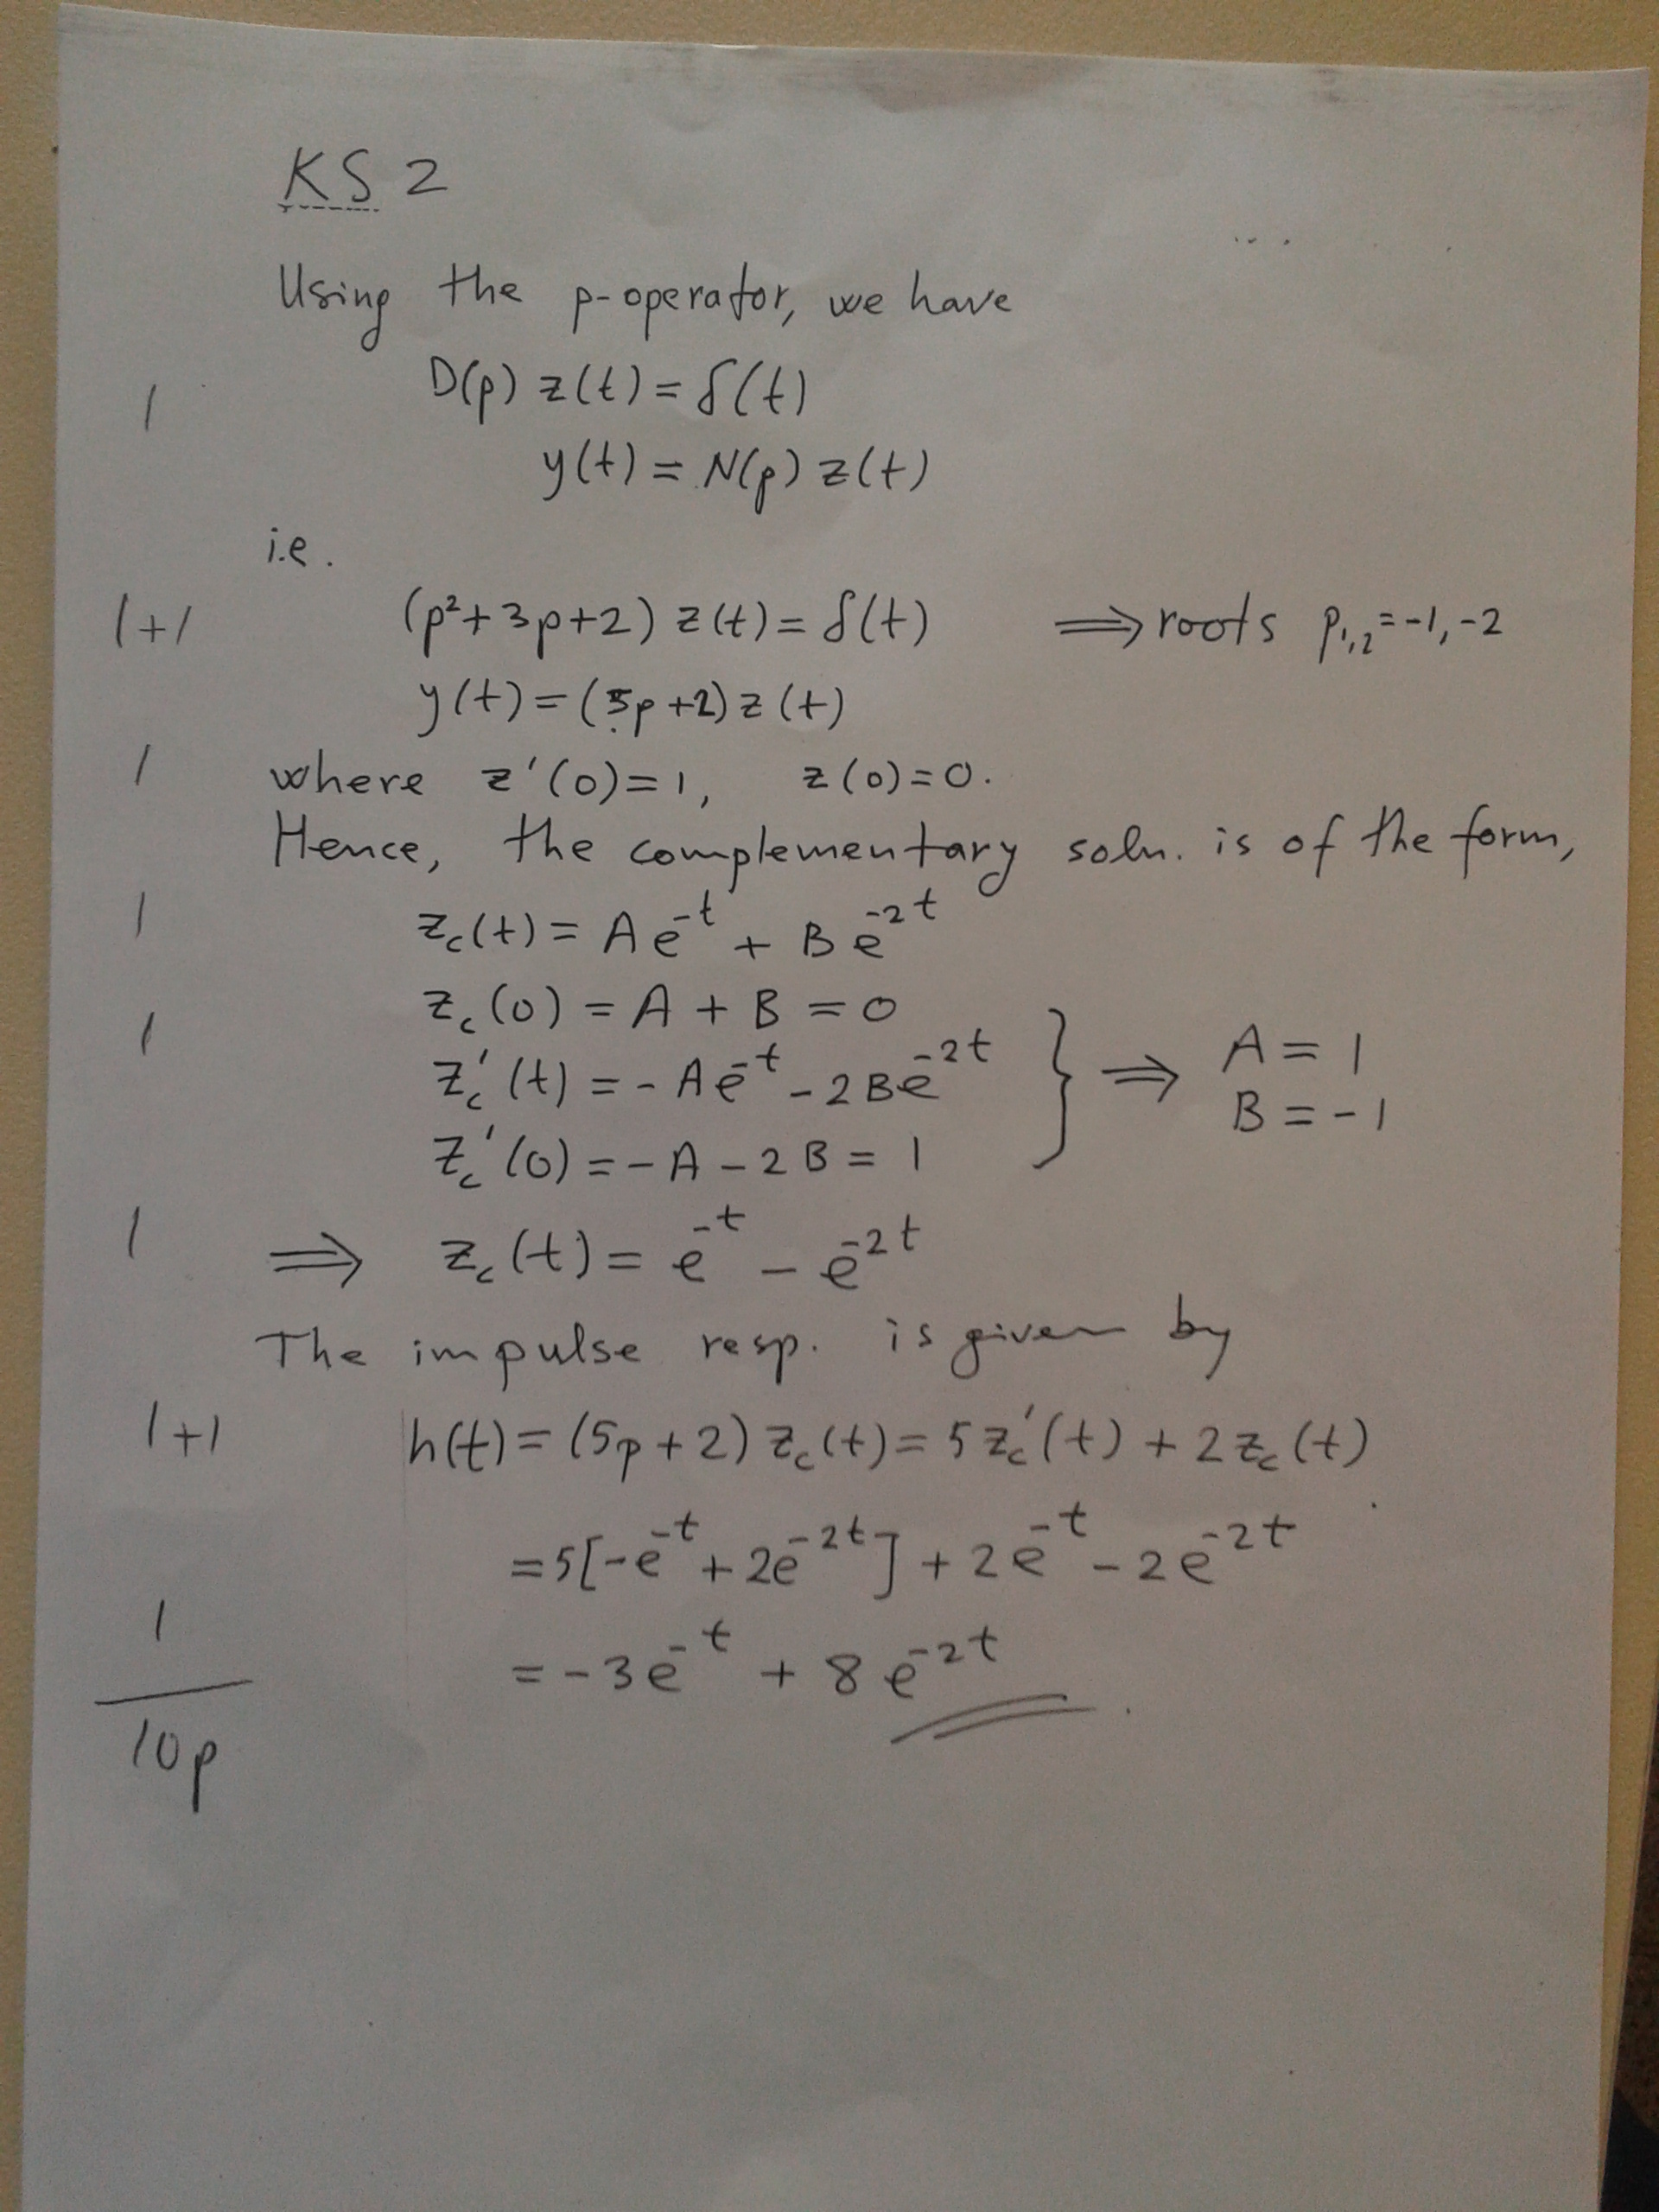 KS 2
Using the p-operator, we have
D(p) z(t) = δ(t)
1
y(t) = N(p) z(t)
i.e.
1+1 (p²+3p+2) z(t) = δ(t) ⟹ roots p₁,₂ = -1, -2
y(t) = (5p+2) z(t)
1 where z'(0)=1, z(0)=0.
Hence, the complementary soln. is of the form,
1 z_c(t) = A e^{-t} + B e^{-2t}
z_c(0) = A + B = 0
1
z_c'(t) = -A e^{-t} - 2B e^{-2t} } ⟹ A = 1
B = -1
z_c'(0) = -A - 2B = 1
1 ⟹ z_c(t) = e^{-t} - e^{-2t}
The impulse resp. is given by
1+1 h(t) = (5p+2) z_c(t) = 5 z_c'(t) + 2 z_c(t)
= 5[-e^{-t} + 2e^{-2t}] + 2e^{-t} - 2e^{-2t}
1
= -3e^{-t} + 8e^{-2t}
10p